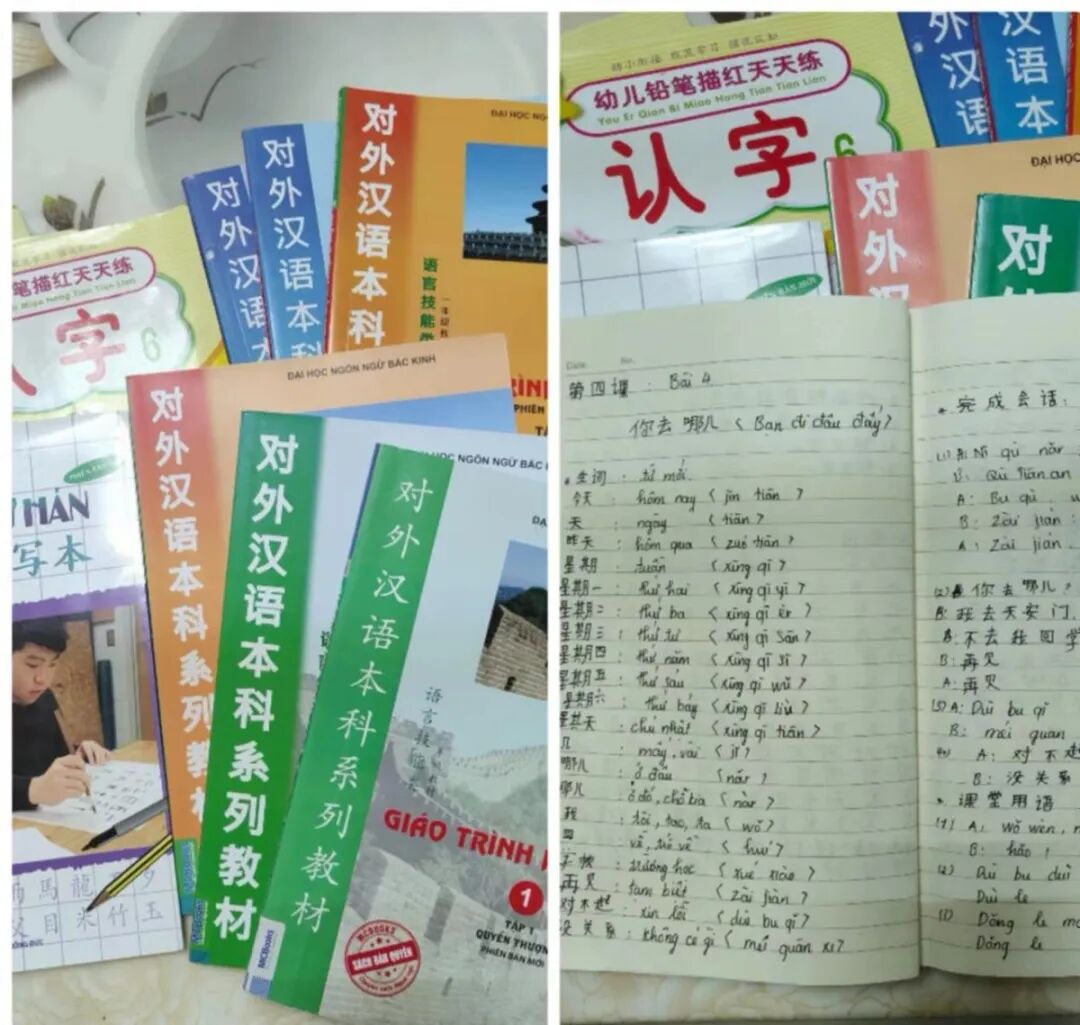 笔描红天天练
字
6
对外汉语
对外汉语本科
对外汉语本科
语言技能类
ĐẠI HỌC NGÔN NGỮ BẮC KINH
对外汉语本科系列教材
对外汉语本科系列教材
对外汉语本科系列教材
语言技能
GIÁO TRÌNH
1
TẬP 1
QUYỂN THƯỢNG
PHIÊN BẢN MỚI
MCBOOKS
SÁCH BẢN QUYỀN
MCBooks
HÁN
写本
馬 龍
父 目 米 竹 玉
幼儿铅笔描红天天练
You Er Qian Bi Miao Hong Tian Tian Lian
认字
6
外汉语
汉语本
ĐẠI HỌC
对外汉
对
Date No.
第四课 : Bài 4
你去哪儿 < Bạn đi đâu đấy?
* 生词 : từ mới.
今天 : hôm nay < jīn tiān >
天 : ngày < tiān >
昨天 : hôm qua < zuó tiān >
星期 : tuần < xīng qī >
星期一 : thứ hai < xīng qī yī >
星期二 : thứ ba < xīng qī èr >
星期三 : thứ tư < xīng qī sān >
星期四 : thứ năm < xīng qī sì >
星期五 : thứ sáu < xīng qī wǔ >
星期六 : thứ bảy < xīng qī liù >
星期天 : chủ nhật < xīng qī tiān >
几 : mấy, vài < jǐ >
哪儿 : ở đâu < nǎr >
那儿 : ở đó, chỗ kia < nàr >
我 : tôi, tao, ta < wǒ >
回 : về, trở về < huí >
学校 : trường học < xué xiào >
再见 : tạm biệt < zài jiàn >
对不起 : xin lỗi < duì bu qǐ >
没关系 : không có gì < méi guān xi >
* 完成会话:
(1) A: Nǐ qù nǎr
B: Qù Tiān an
A: Bu qù, w
B: Zài jiàn
A: Zài jiàn.
(2) A: 你去哪儿?
B: 我去天安门,
A: 不去我回学
B: 再见
A: 再见
(3) A: Duì bu qǐ
B: méi guan
(4) A: 对不起
B: 没关系
* 课堂用语
(1) A: Wǒ wèn, n
B: hǎo!
(2) Duì bu duì
Duì le
(3) Dǒng le ma
Dǒng le